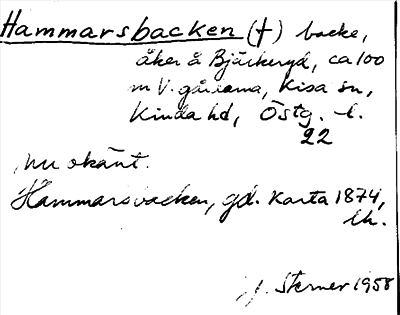 Hammarsbacken (†) backe,
åker å Björkeryd, ca 100
m V. gårdarna, Kisa sn,
Kinda hd, Östg. l.
22
nu okänt.
Hammarsbacken, gd. Karta 1874,
lk.
J. Sterner 1958